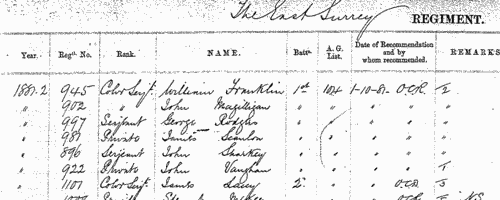 The East Surrey REGIMENT.
Year. Regtl. No. Rank. NAME. Batn. A. G. List. Date of Recommendation and by whom recommended. REMARKS
1881-2 945 Color Serjt. William Franklin 1st 104 1-10-81 O.C.R. 1/2
" 902 " John Magilligan " " " " "
" 997 Serjeant George Rodgers " " " " "
" 987 Private James Scanlon " " " "
" 896 Serjeant John Sharkey " " " " "
" 922 Private John Vaughan " " " "
" 1101 Color Serjt. James Lacey 2. " " O.C.R.